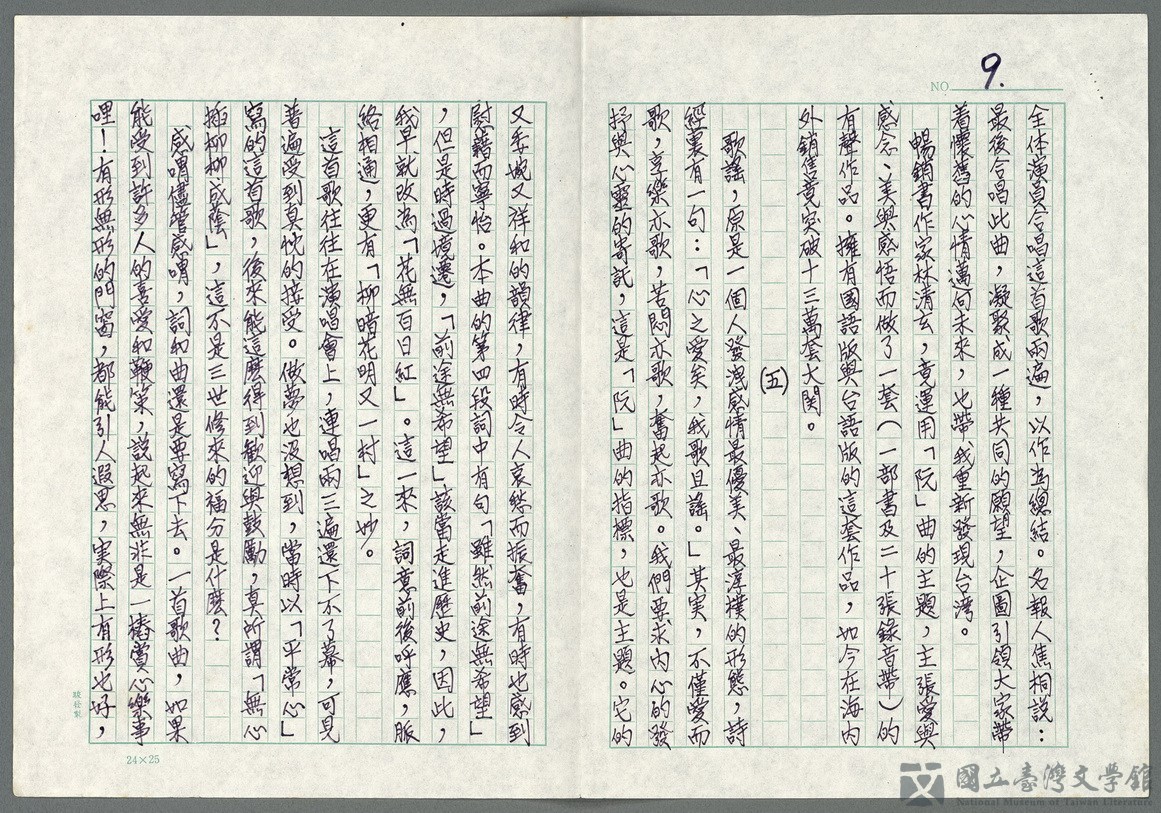 NO. 9.
全体演員合唱這首歌兩遍，以作為總結。名報人焦桐說：
最後合唱此曲，凝聚成一種共同的願望，企圖引領大家帶
着懷舊的心情邁向未來，也帶我重新發現台灣。
暢銷書作家林清玄，竟運用「阮」曲的主題，主張愛與
感念、美與感悟而做了一套（一部書及二十張錄音帶）的
有聲作品。擁有國語版與台語版的這套作品，如今在海內
外銷售竟突破十三萬套大関。
(五)
歌謠，原是一個人發洩感情最優美、最淳樸的形態，詩
經裏有一句：「心之愛矣，我歌且謠。」其実，不僅愛而
歌，享樂亦歌，苦悶亦歌，奮起亦歌。我們要求內心的發
抒與心靈的寄託，這是「阮」曲的指標，也是主題。它的
又委婉又祥和的韻律，有時令人哀愁而振奮，有時也感到
慰藉而寧怡。本曲的第四段詞中有句「雖然前途無希望」
，但是時過境遷，「前途無希望」該當走進歷史，因此，
我早就改為「花無百日紅」。這一來，詞意前後呼應，脈
絡相通，更有「柳暗花明又一村」之妙。
這首歌往往在演唱會上，連唱兩三遍還下不了幕，可見
普遍受到真忱的接受。做夢也没想到，當時以「平常心」
寫的這首歌，後來能這麼得到歡迎與鼓勵，真所謂「無心
插柳柳成蔭」，這不是三世修來的福分是什麼？
感喟儘管感喟，詞和曲還是要寫下去。一首歌曲，如果
能受到許多人的喜愛和鞭策，說起來無非是一樁賞心樂事
哩！有形無形的門窗，都能引人遐思，実際上有形也好，
24×25
國立臺灣文學館
National Museum of Taiwan Literature